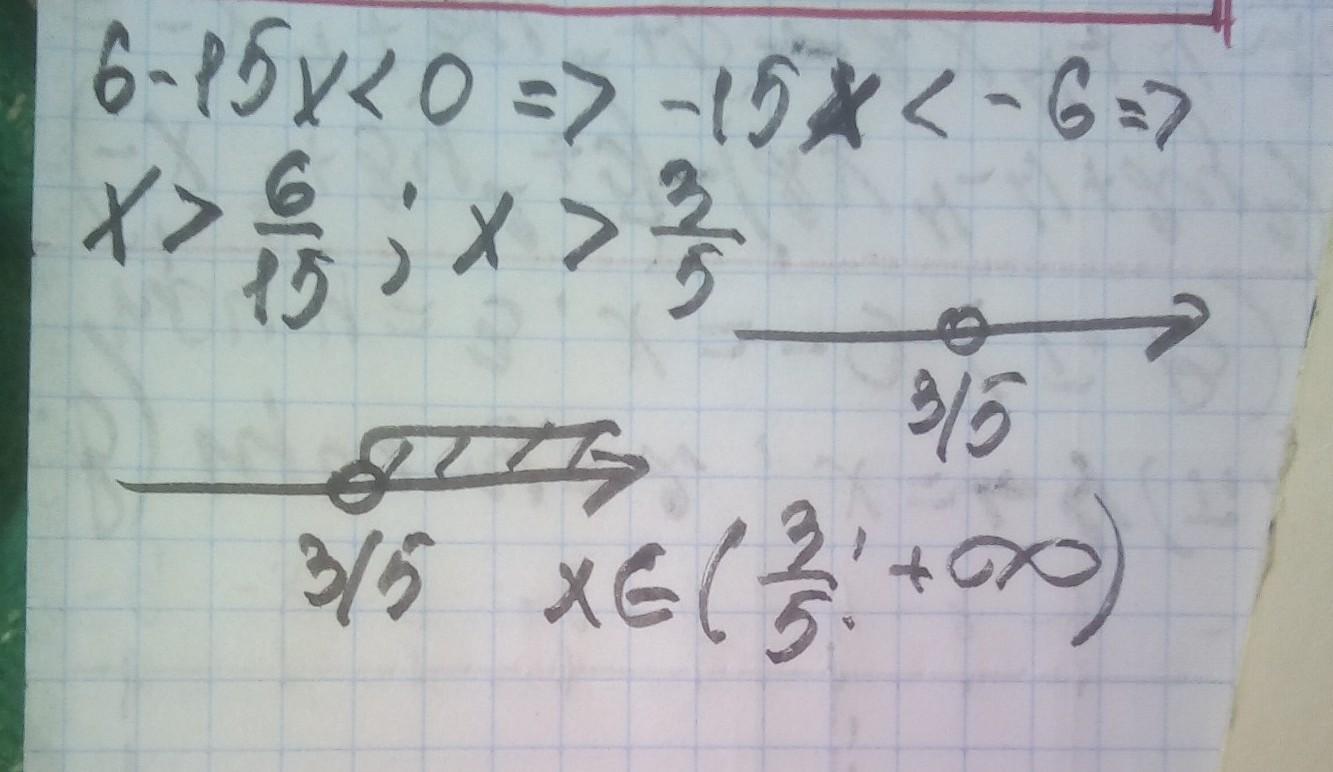 6-15x<0 => -15x < -6 =>
x > 6/15 ; x > 3/5
3/5
3/5
x∈(3/5; +∞)